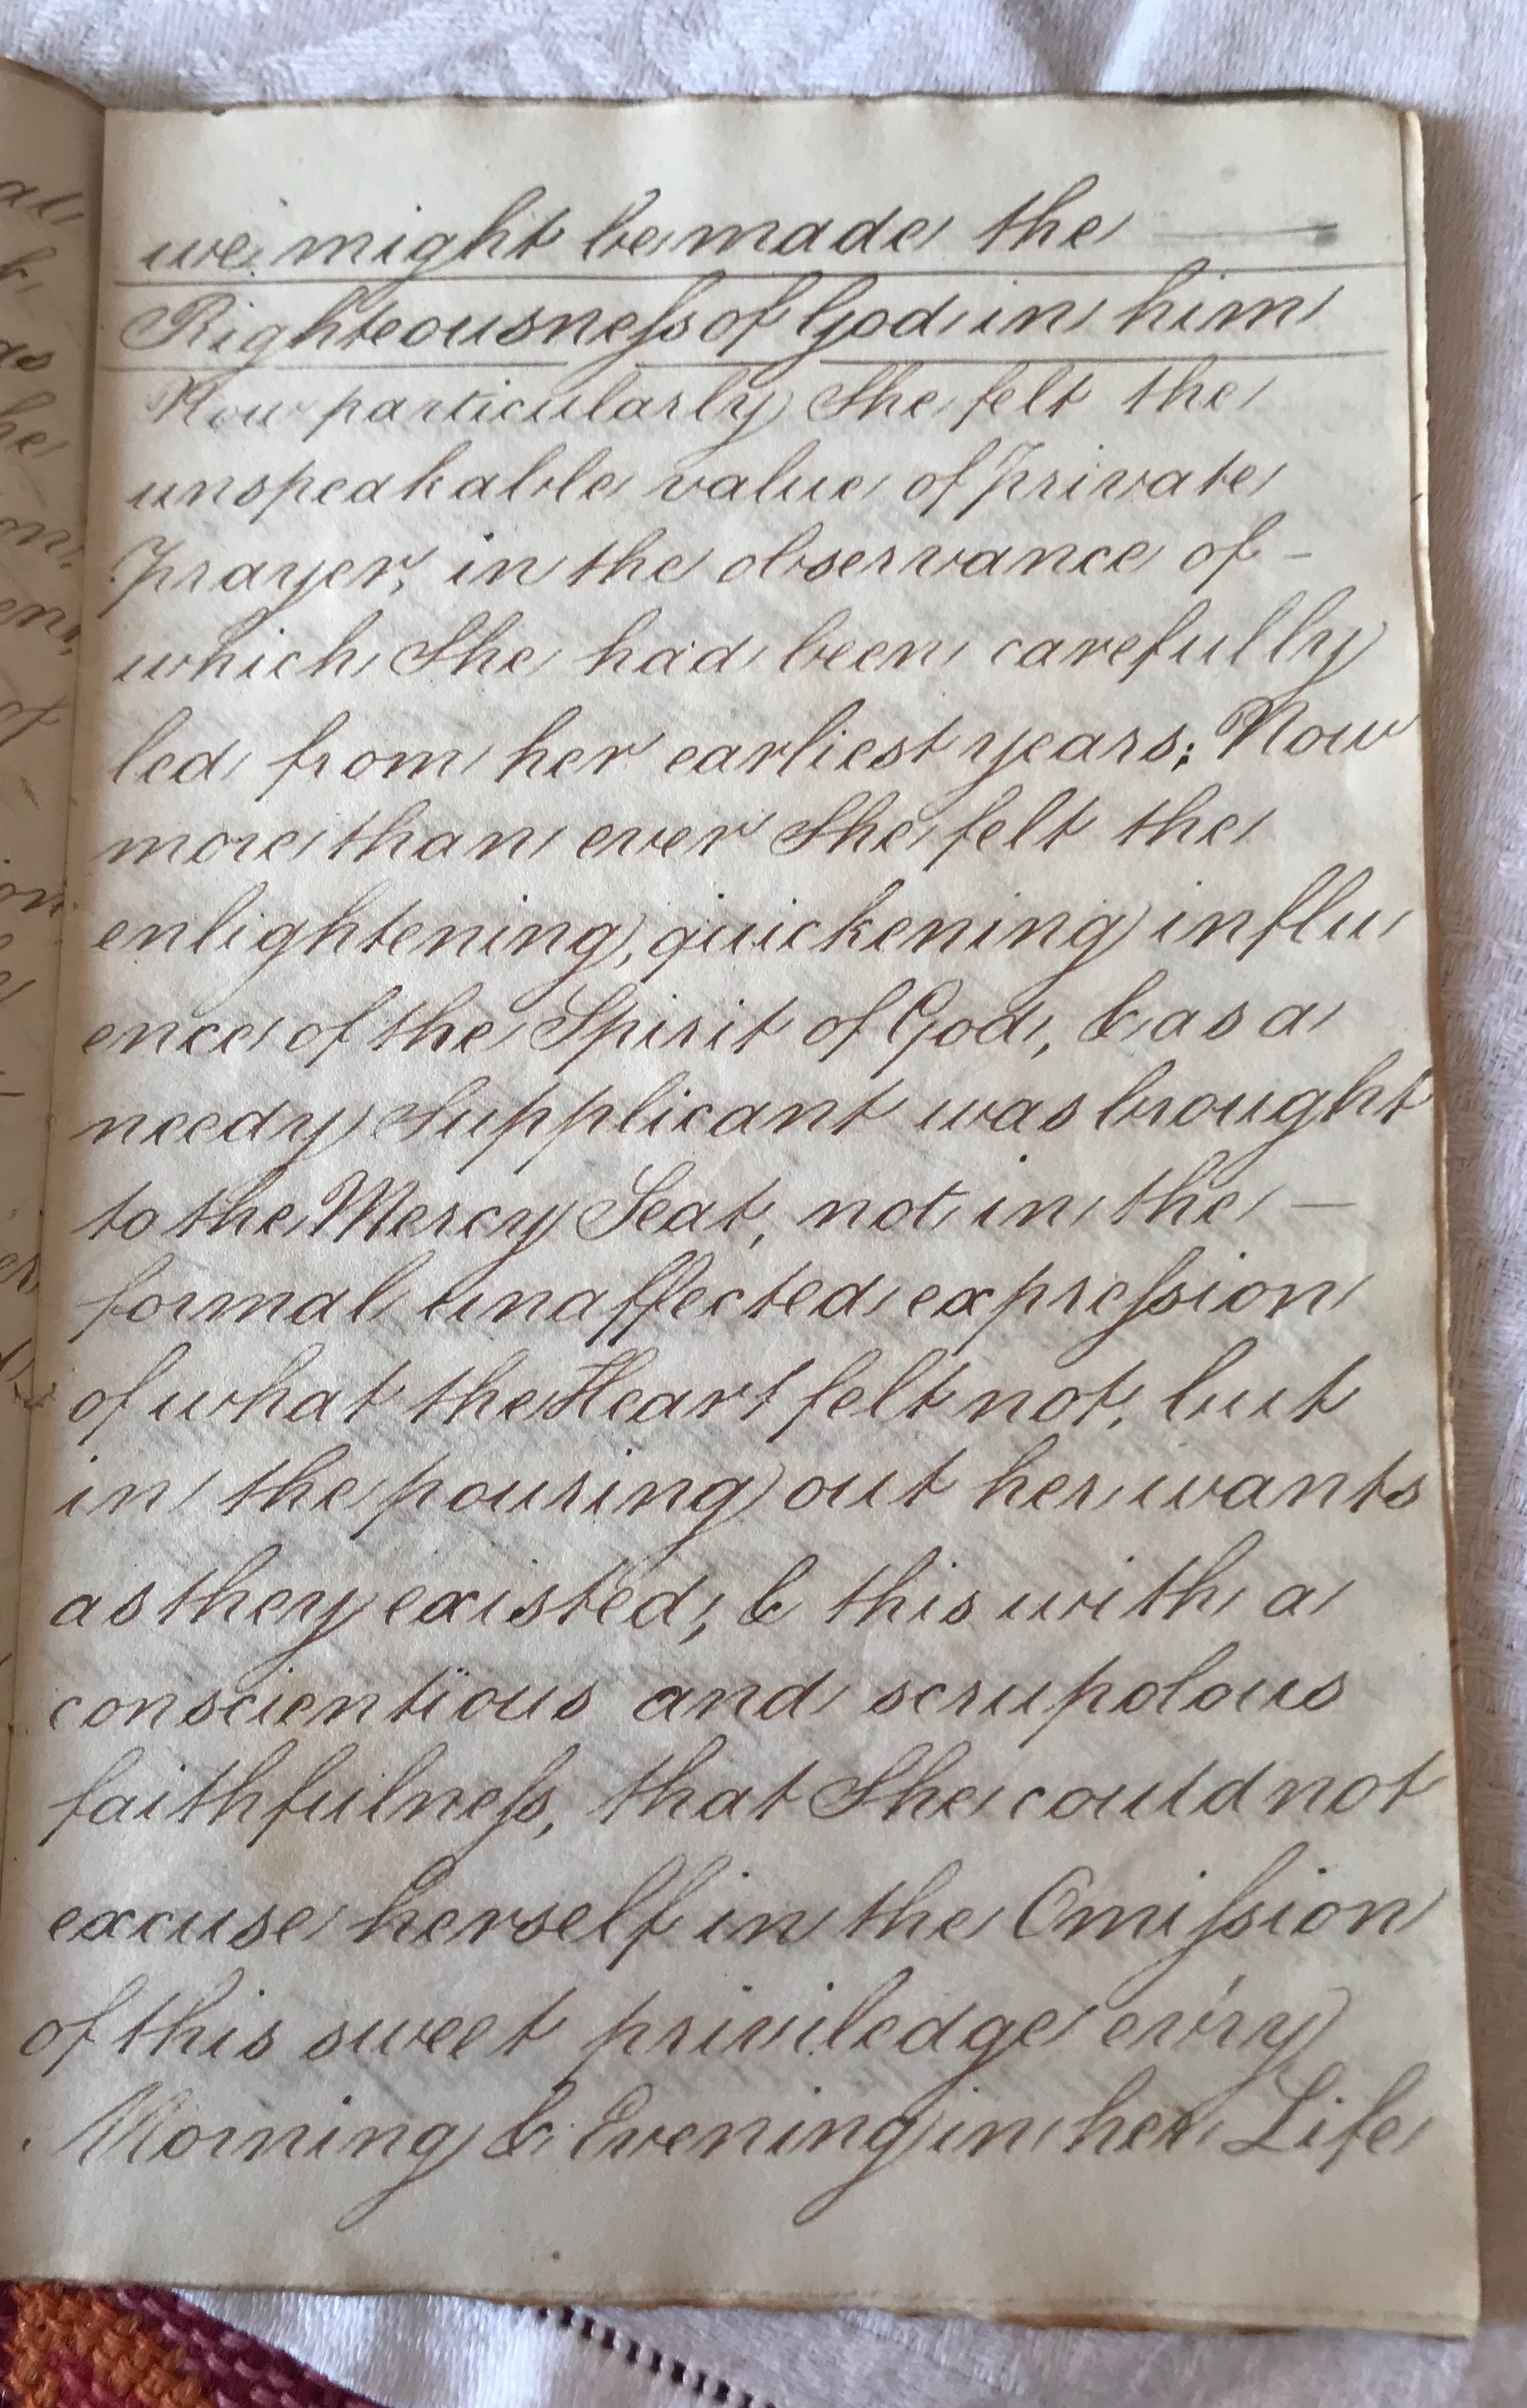 we might be made the —
Righteousness of God in him
Now particularly She felt the
unspeakable value of Private
Prayer, in the observance of –
which She had been carefully
led from her earliest years; Now
more than ever She felt the
enlightening, quickening influ
ence of the Spirit of God, & as a
needy Supplicant was brought
to the Mercy Seat, not in the —
formal unaffected expression
of what the Heart felt not, but
in the pouring out her wants
as they existed, & this with a
conscientious and scrupolous
faithfulness, that She could not
excuse herself in the Omission
of this sweet priviledge ev'ry
Morning & Evening in her Life